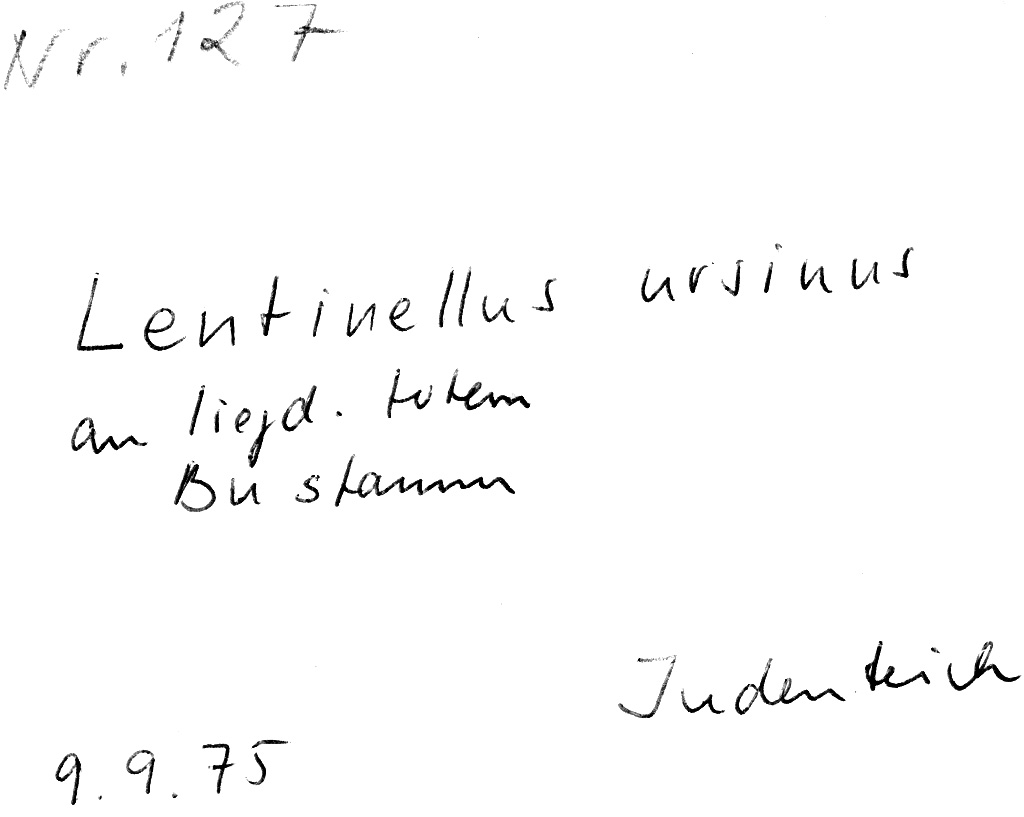 Nr. 127
Lentinellus ursinus
an liegd. totem
Bu stamm
Judenteich
9.9.75